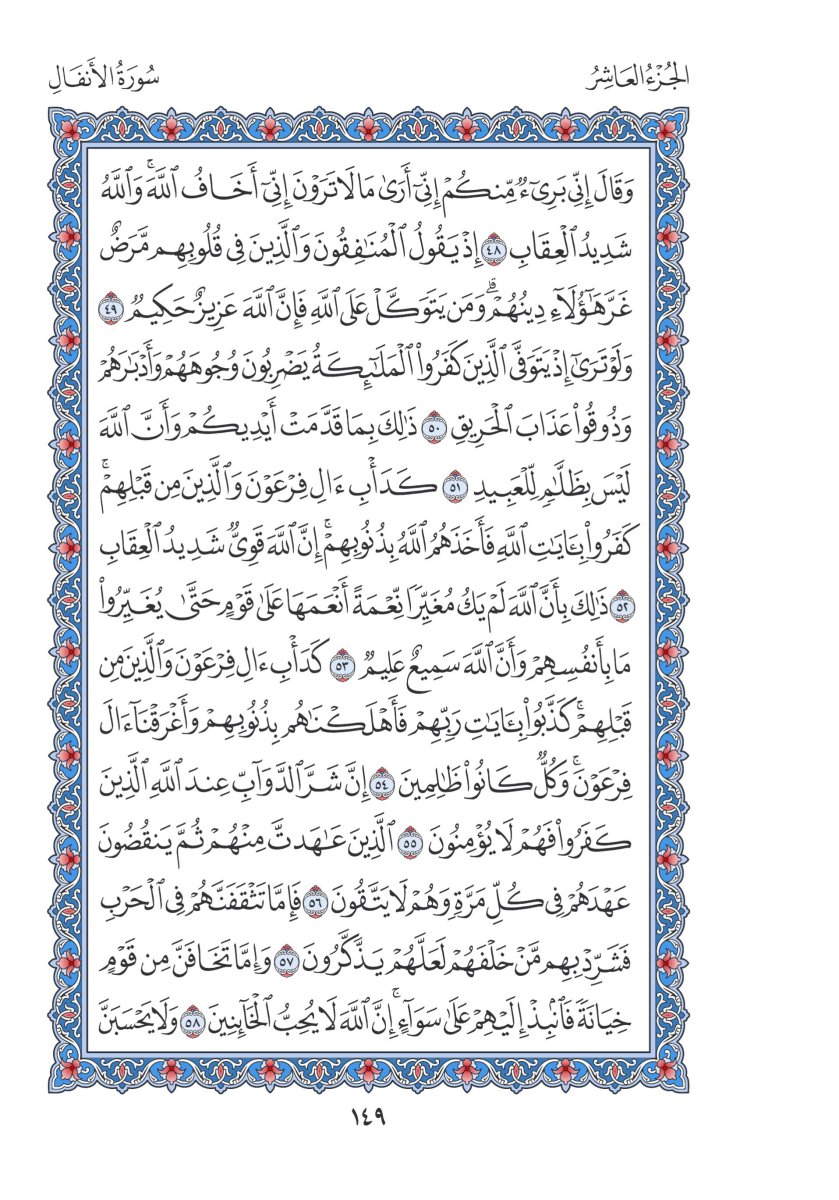 الجُزْءُ العَاشِرُ
سُورَةُ الأَنفَالِ
وَقَالَ إِنِّي بَرِيٓءٞ مِّنكُمۡ إِنِّيٓ أَرَىٰ مَا لَا تَرَوۡنَ إِنِّيٓ أَخَافُ ٱللَّهَۚ وَٱللَّهُ
شَدِيدُ ٱلۡعِقَابِ ٤٨ إِذۡ يَقُولُ ٱلۡمُنَٰفِقُونَ وَٱلَّذِينَ فِي قُلُوبِهِم مَّرَضٌ
غَرَّ هَٰٓؤُلَآءِ دِينُهُمۡۗ وَمَن يَتَوَكَّلۡ عَلَى ٱللَّهِ فَإِنَّ ٱللَّهَ عَزِيزٌ حَكِيمٞ ٤٩
وَلَوۡ تَرَىٰٓ إِذۡ يَتَوَفَّى ٱلَّذِينَ كَفَرُواْ ٱلۡمَلَٰٓئِكَةُ يَضۡرِبُونَ وُجُوهَهُمۡ وَأَدۡبَٰرَهُمۡ
وَذُوقُواْ عَذَابَ ٱلۡحَرِيقِ ٥٠ ذَٰلِكَ بِمَا قَدَّمَتۡ أَيۡدِيكُمۡ وَأَنَّ ٱللَّهَ
لَيۡسَ بِظَلَّٰمٖ لِّلۡعَبِيدِ ٥١ كَدَأۡبِ ءَالِ فِرۡعَوۡنَ وَٱلَّذِينَ مِن قَبۡلِهِمۡۚ
كَفَرُواْ بِـَٔايَٰتِ ٱللَّهِ فَأَخَذَهُمُ ٱللَّهُ بِذُنُوبِهِمۡۚ إِنَّ ٱللَّهَ قَوِيّٞ شَدِيدُ ٱلۡعِقَابِ
٥٢ ذَٰلِكَ بِأَنَّ ٱللَّهَ لَمۡ يَكُ مُغَيِّرٗا نِّعۡمَةً أَنۡعَمَهَا عَلَىٰ قَوۡمٍ حَتَّىٰ يُغَيِّرُواْ
مَا بِأَنفُسِهِمۡ وَأَنَّ ٱللَّهَ سَمِيعٌ عَلِيمٞ ٥٣ كَدَأۡبِ ءَالِ فِرۡعَوۡنَ وَٱلَّذِينَ مِن
قَبۡلِهِمۡۚ كَذَّبُواْ بِـَٔايَٰتِ رَبِّهِمۡ فَأَهۡلَكۡنَٰهُم بِذُنُوبِهِمۡ وَأَغۡرَقۡنَآ ءَالَ
فِرۡعَوۡنَۚ وَكُلّٞ كَانُواْ ظَٰلِمِينَ ٥٤ إِنَّ شَرَّ ٱلدَّوَآبِّ عِندَ ٱللَّهِ ٱلَّذِينَ
كَفَرُواْ فَهُمۡ لَا يُؤۡمِنُونَ ٥٥ ٱلَّذِينَ عَٰهَدتَّ مِنۡهُمۡ ثُمَّ يَنقُضُونَ
عَهۡدَهُمۡ فِي كُلِّ مَرَّةٖ وَهُمۡ لَا يَتَّقُونَ ٥٦ فَإِمَّا تَثۡقَفَنَّهُمۡ فِي ٱلۡحَرۡبِ
فَشَرِّدۡ بِهِم مَّنۡ خَلۡفَهُمۡ لَعَلَّهُمۡ يَذَّكَّرُونَ ٥٧ وَإِمَّا تَخَافَنَّ مِن قَوۡمٍ
خِيَانَةٗ فَٱنۢبِذۡ إِلَيۡهِمۡ عَلَىٰ سَوَآءٍۚ إِنَّ ٱللَّهَ لَا يُحِبُّ ٱلۡخَآئِنِينَ ٥٨ وَلَا يَحۡسَبَنَّ
١٤٩